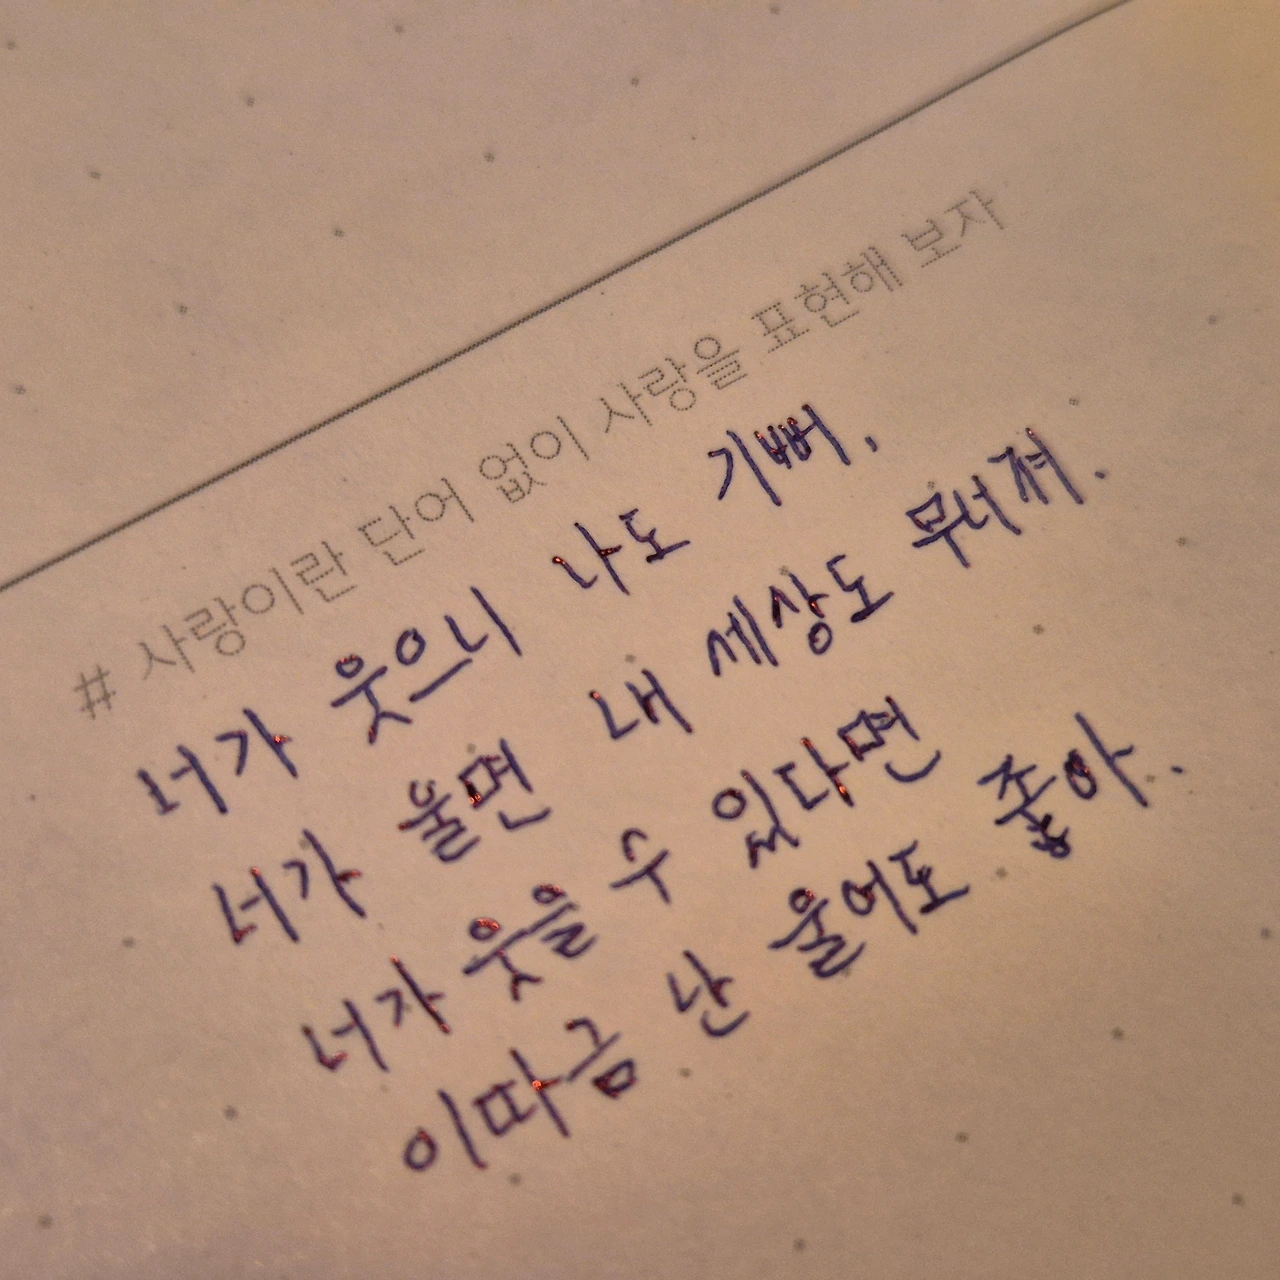 # 사랑이란 단어 없이 사랑을 표현해 보자
너가 웃으니 나도 기뻐.
너가 울면 내 세상도 무너져.
너가 웃을 수 있다면
이따금 난 울어도 좋아.